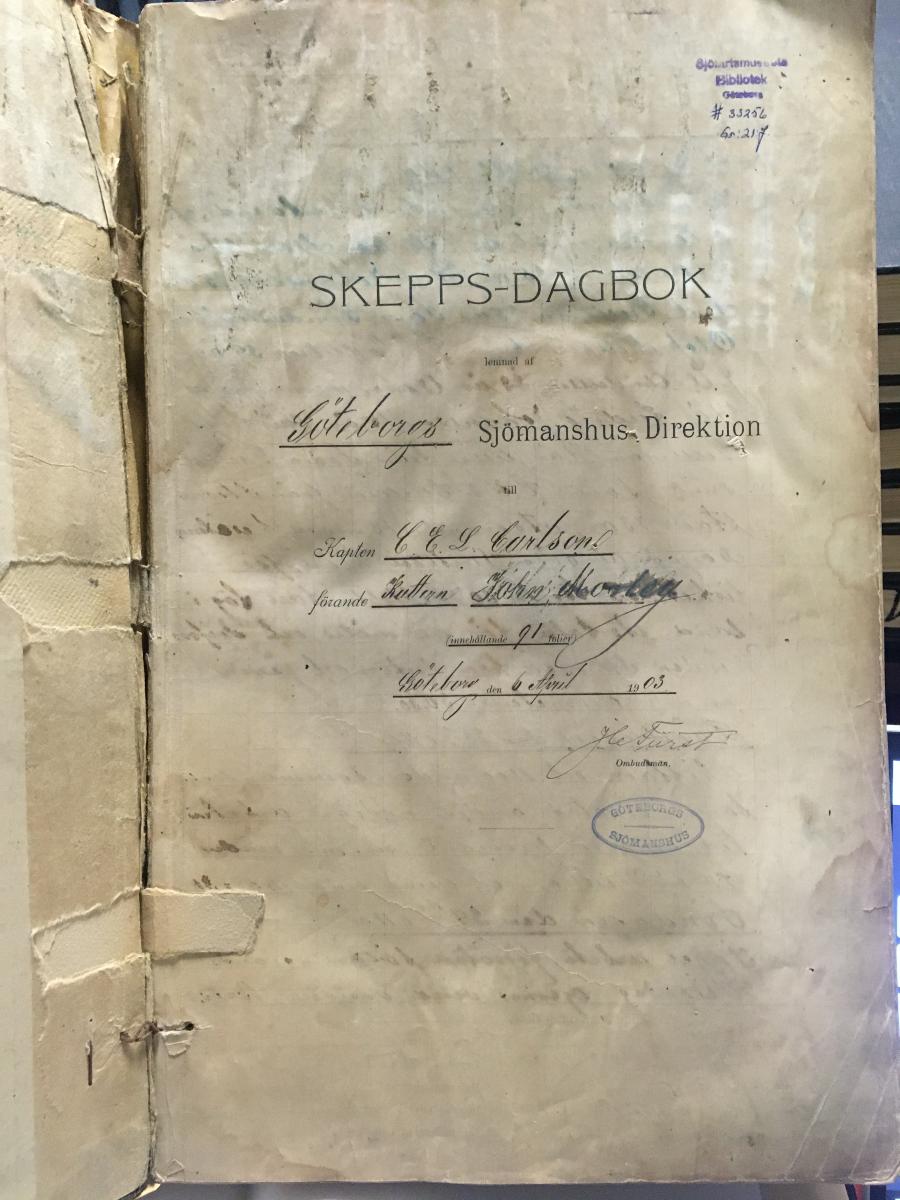 Sjöfartsmuseets
Bibliotek
Göteborg
# 33256
Gr: 217
SKEPPS-DAGBOK
lemnad af
Göteborgs Sjömanshus-Direktion
till
Kapten C. E. L. Carlson
förande Kuttern John Morley
(innehållande 91 folier)
Göteborg den 6 April 1903
Fürst
Ombudsman.
GÖTEBORGS
SJÖMANSHUS